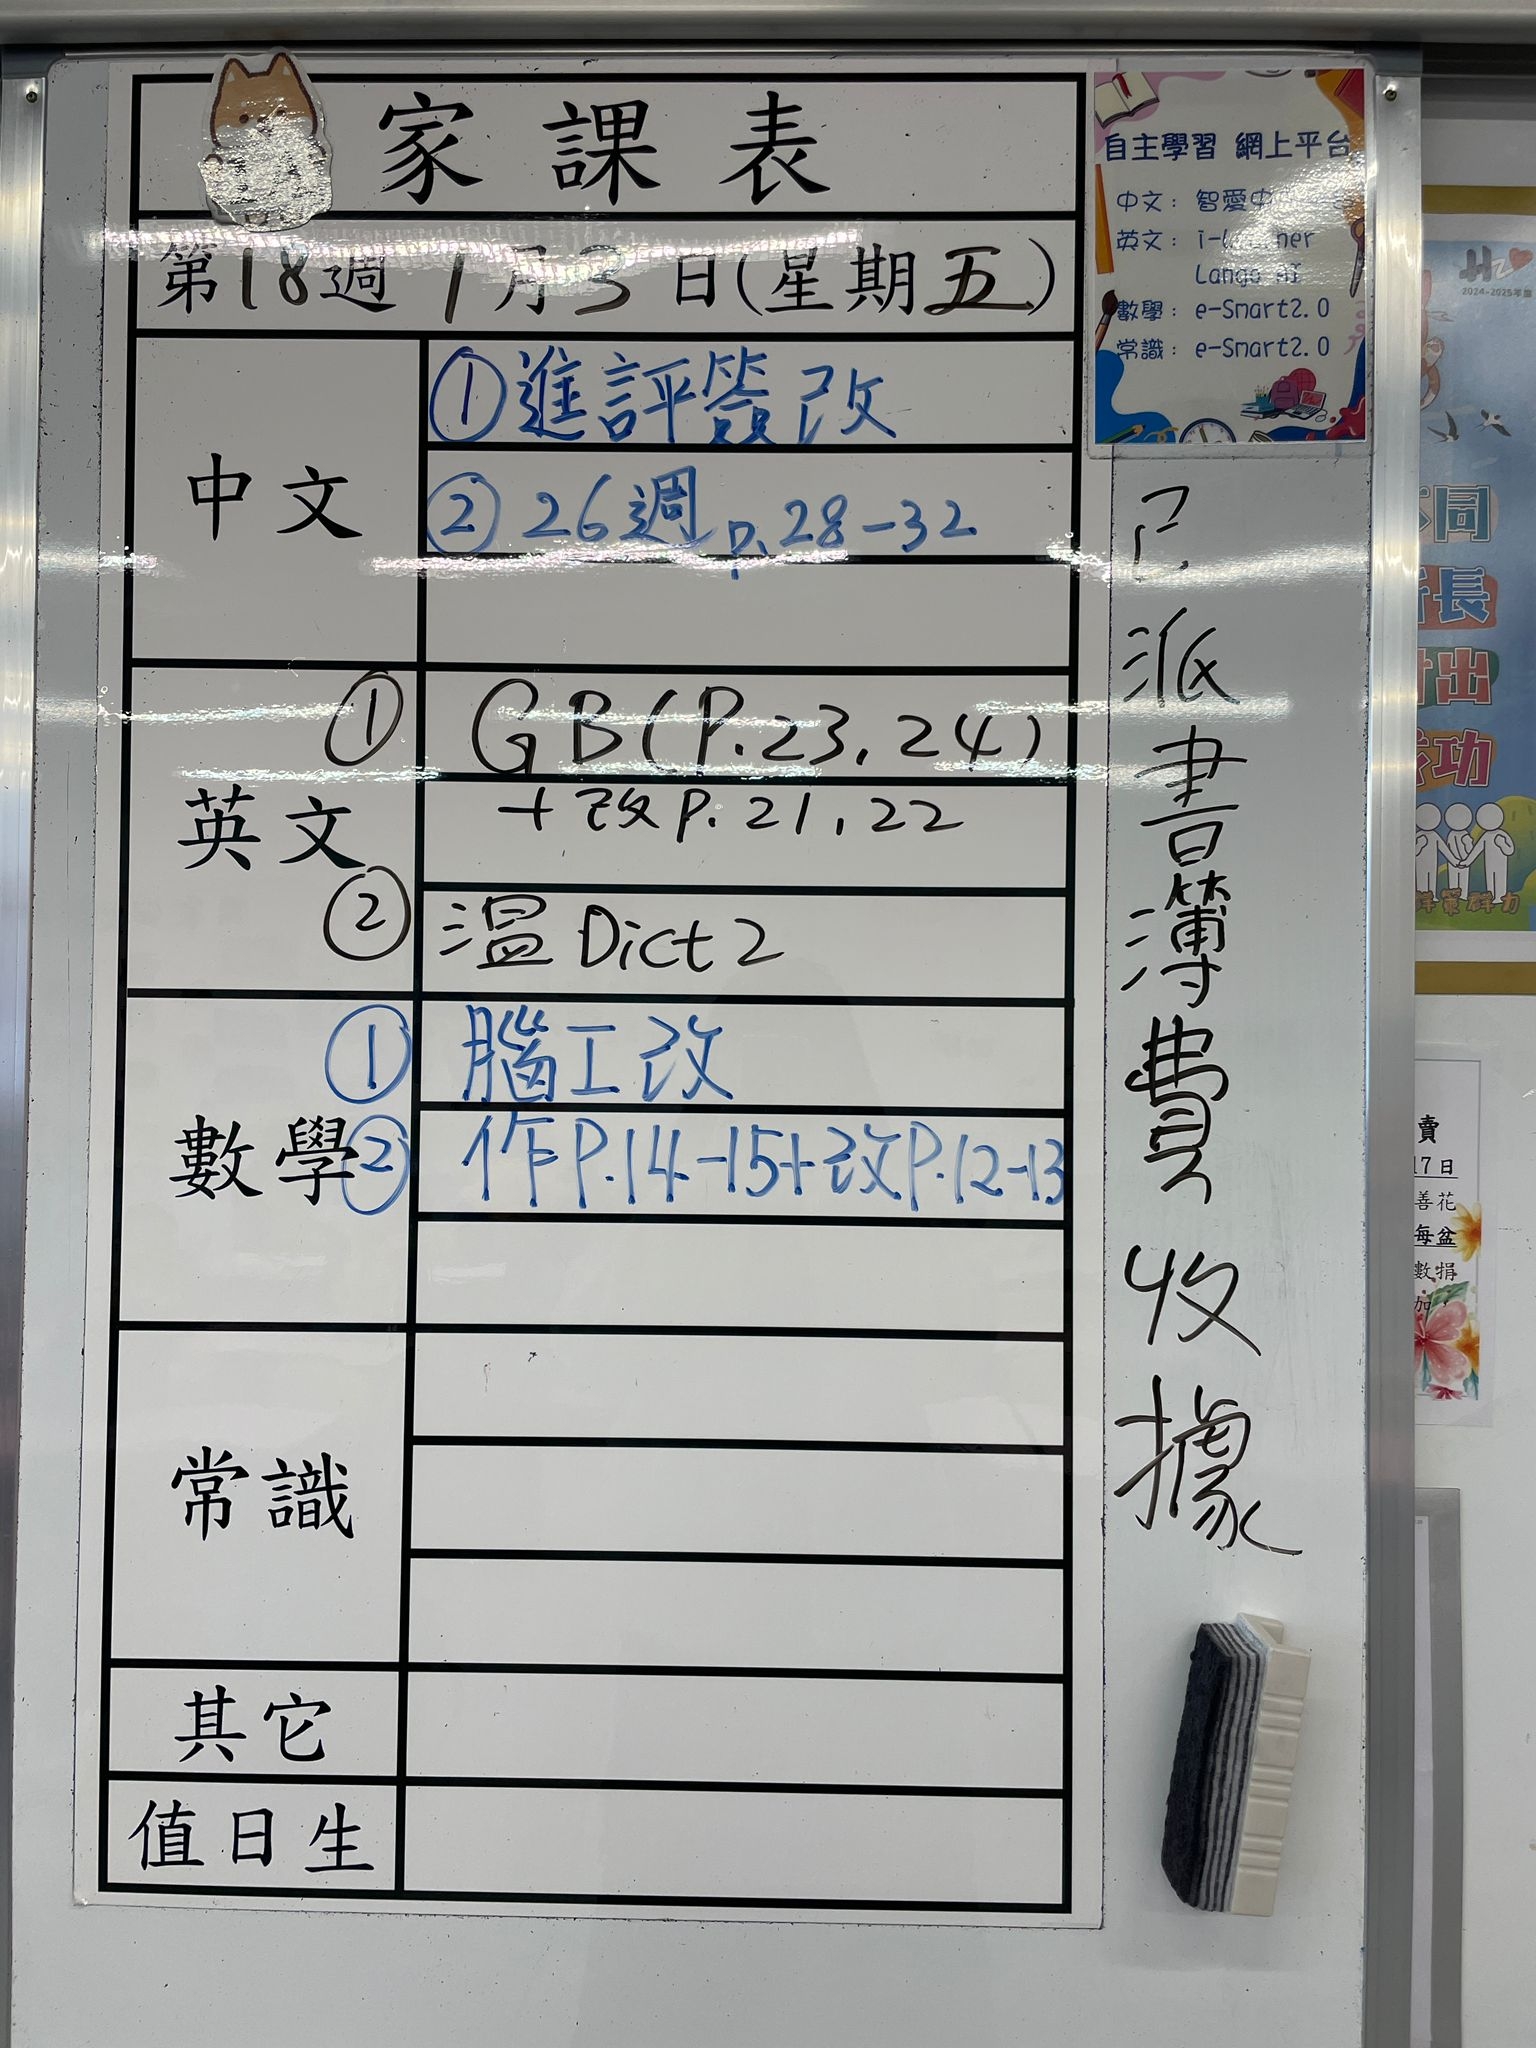 家課表
第18週 1月3日(星期五)
中文
①進評簽改
②26週 P.28-32
英文
① GB(P.23,24)
+改P.21,22
②溫Dict 2
數學
①腦工改
②作P.14-15+改P.12-13
常識
其它
值日生
自主學習 網上平台
中文：智愛中
英文：i-Learner
Lango AI
數學：e-Smart2.0
常識：e-Smart2.0
已派書簿費收據
2024-2025年度
同
長
出
功
群策群力
賣
17日
善花
每盆
數捐
加，